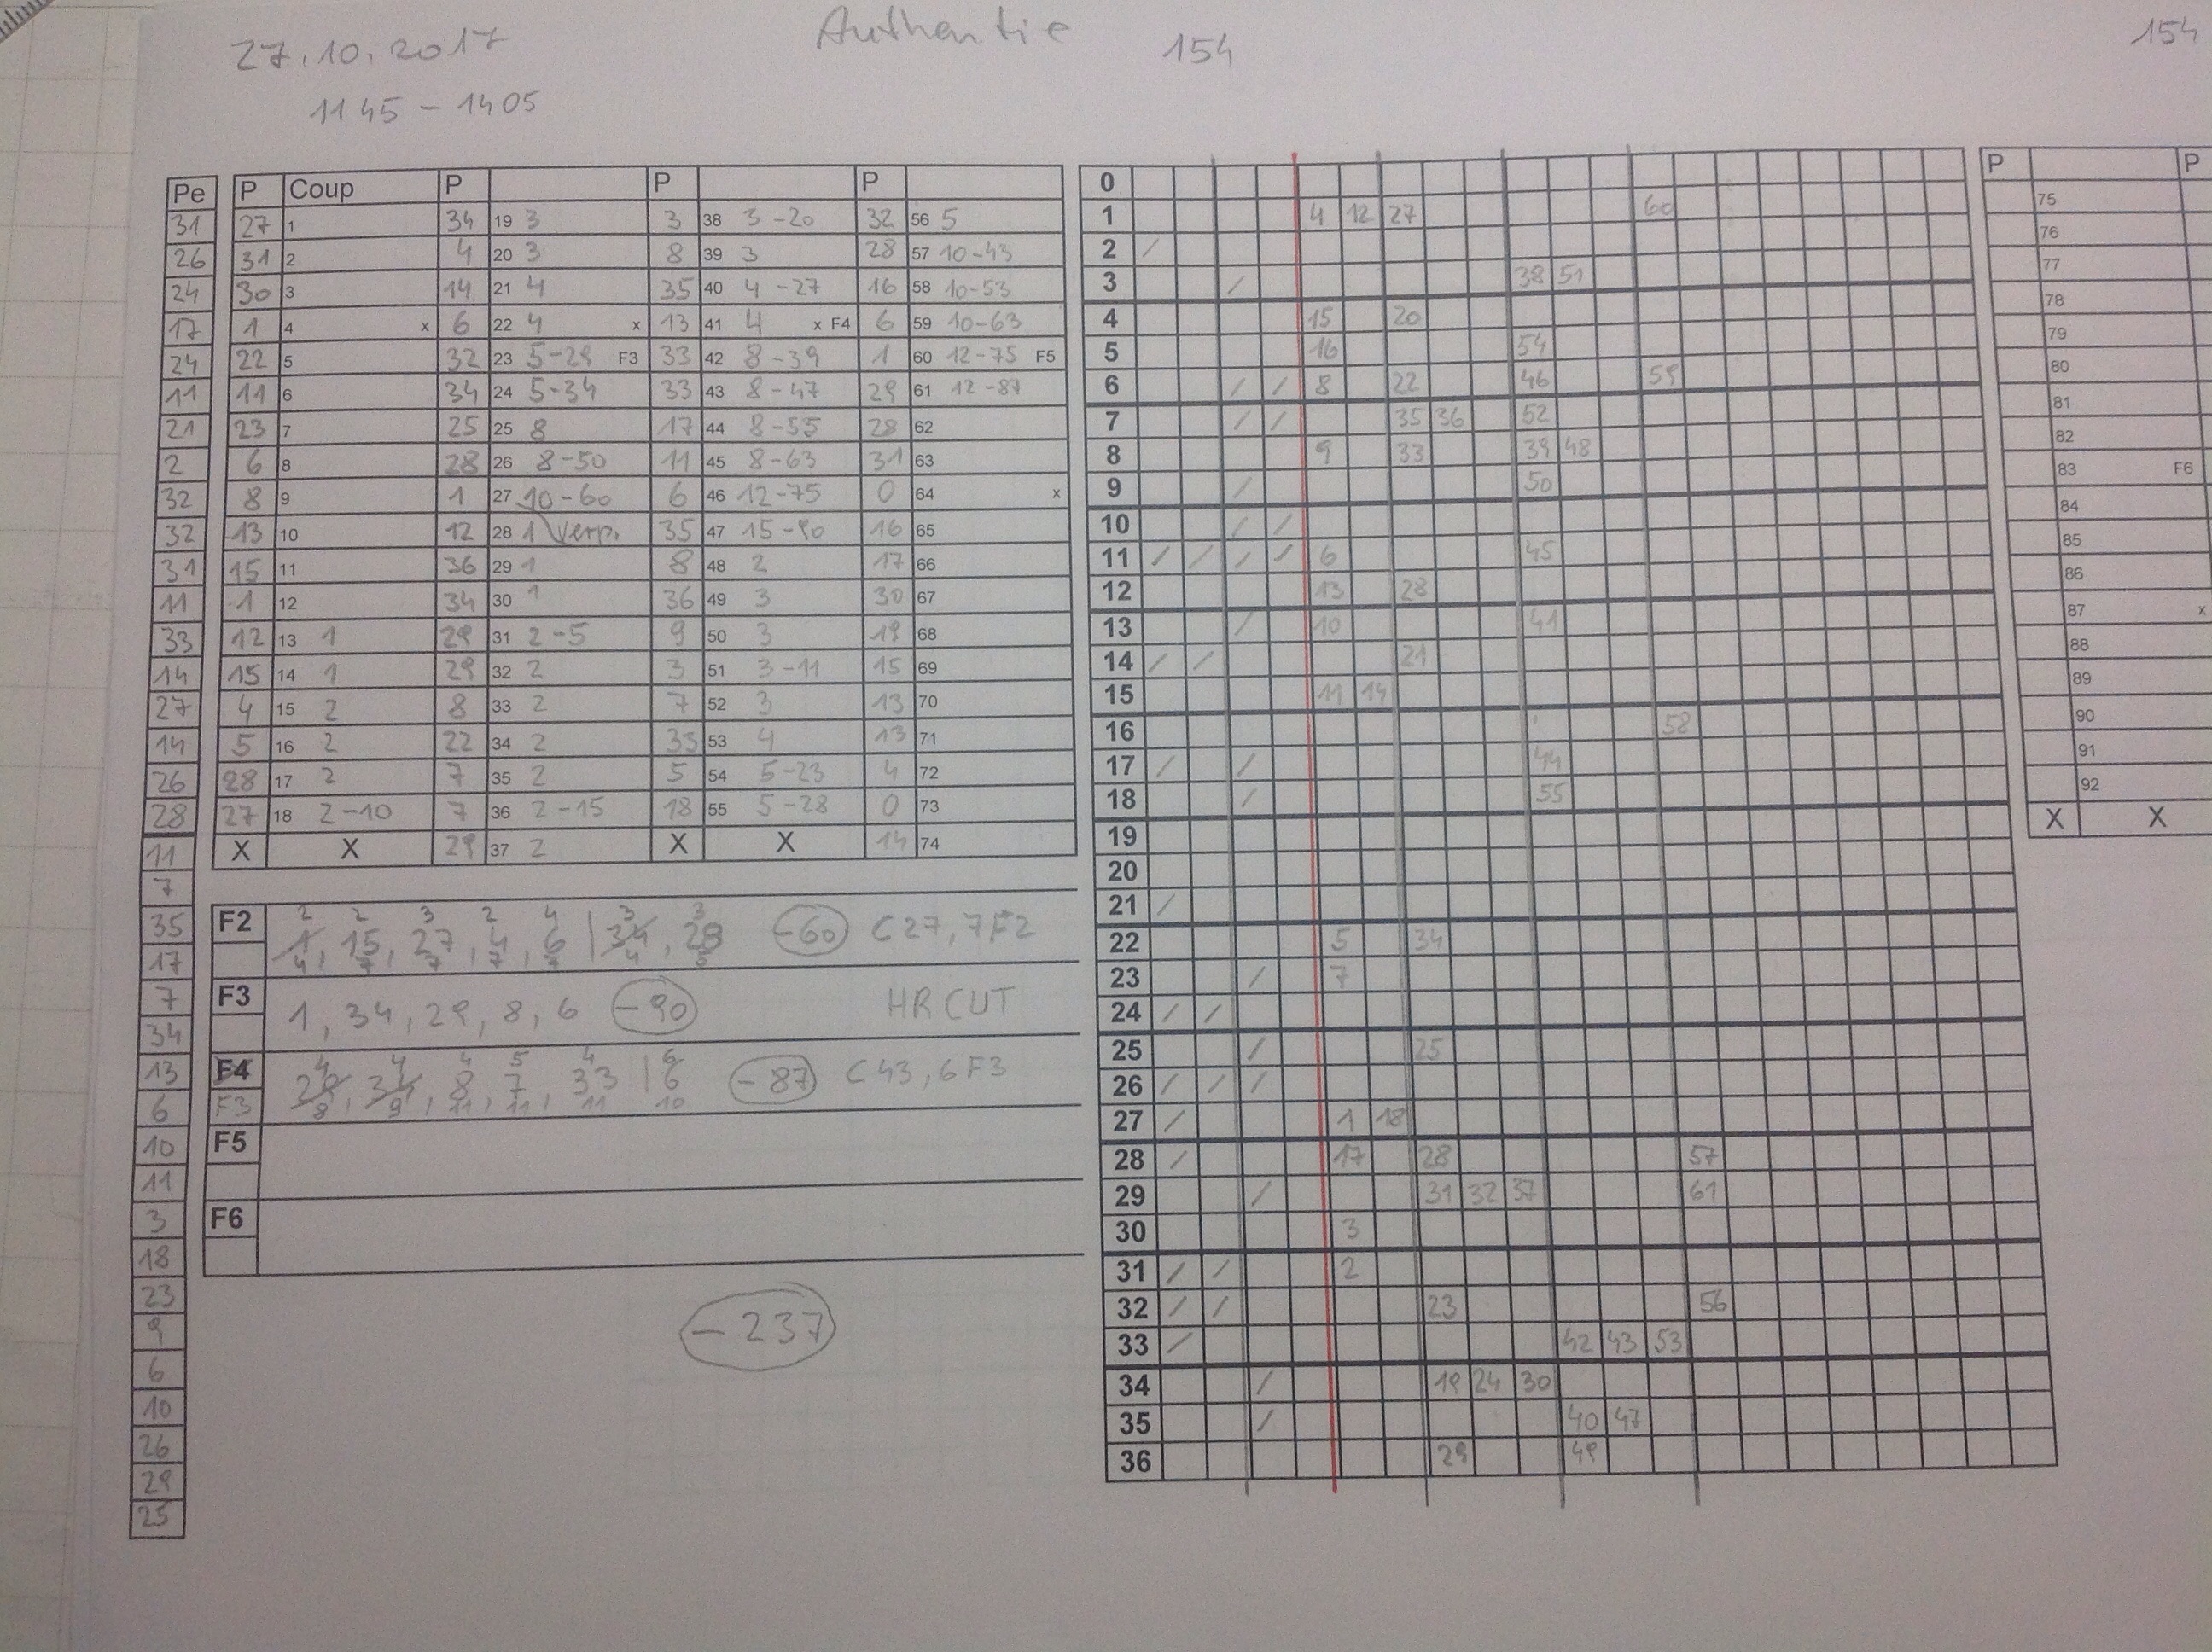 27.10.2017 Authentie 154 154
1145 - 1405
Pe P Coup P P P
31 27 1 34 19 3 3 38 3 -20 32 56 5
26 31 2 4 20 3 8 39 3 28 57 10-43
24 30 3 14 21 4 35 40 4 -27 16 58 10-53
17 1 4 x 6 22 4 x 13 41 4 x F4 6 59 10-63
24 22 5 32 23 5-29 F3 33 42 8-39 1 60 12-75 F5
11 11 6 34 24 5-34 33 43 8-47 29 61 12-87
21 23 7 25 25 8 17 44 8-55 28 62
2 6 8 28 26 8-50 11 45 8-63 31 63
32 8 9 1 27 10-60 6 46 12-75 0 64 x
32 13 10 12 28 1 Verp. 35 47 15-90 16 65
31 15 11 36 29 1 8 48 2 17 66
11 1 12 34 30 1 36 49 3 30 67
33 12 13 1 29 31 2-5 9 50 3 19 68
14 15 14 1 29 32 2 3 51 3-11 15 69
27 4 15 2 8 33 2 7 52 3 13 70
14 5 16 2 22 34 2 33 53 4 13 71
26 28 17 2 7 35 2 5 54 5-23 4 72
28 27 18 2-10 7 36 2-15 18 55 5-28 0 73
11 X X 29 37 2 X X 14 74
7
35
17
7
34
13
6
10
11
3
18
23
9
6
10
26
29
25
2 2 3 2 4 3 3
F2 1, 15, 27, 4, 6 | 34, 29 -60 C27, 7F2
4 7 7 7 7 4
F3 1, 34, 29, 8, 6 -90 HR CUT
4 4 4 5 4 6
F4 29, 34, 8, 7, 33 | 6 -87 C43, 6F3
F3 8 9 11 11 11 10
F5
F6
-237
0
1 4 12 27 60
2 /
3 / 38 51
4 15 20
5 16 54
6 / / 8 22 46 59
7 / / 35 36 52
8 9 33 39 48
9 / 50
10 / /
11 / / / / 6 45
12 13 28
13 / 10 41
14 / / 21
15 11 14
16 58
17 / / 44
18 / 55
19
20
21 /
22 5 34
23 / 7
24 / /
25 / 25
26 / / /
27 / 1 18
28 / 17 28 57
29 / 31 32 37 61
30 3
31 / / 2
32 / / 23 56
33 / 42 43 53
34 / 19 24 30
35 / 40 47
36 29 49
P P
75
76
77
78
79
80
81
82
83 F6
84
85
86
87 x
88
89
90
91
92
X X